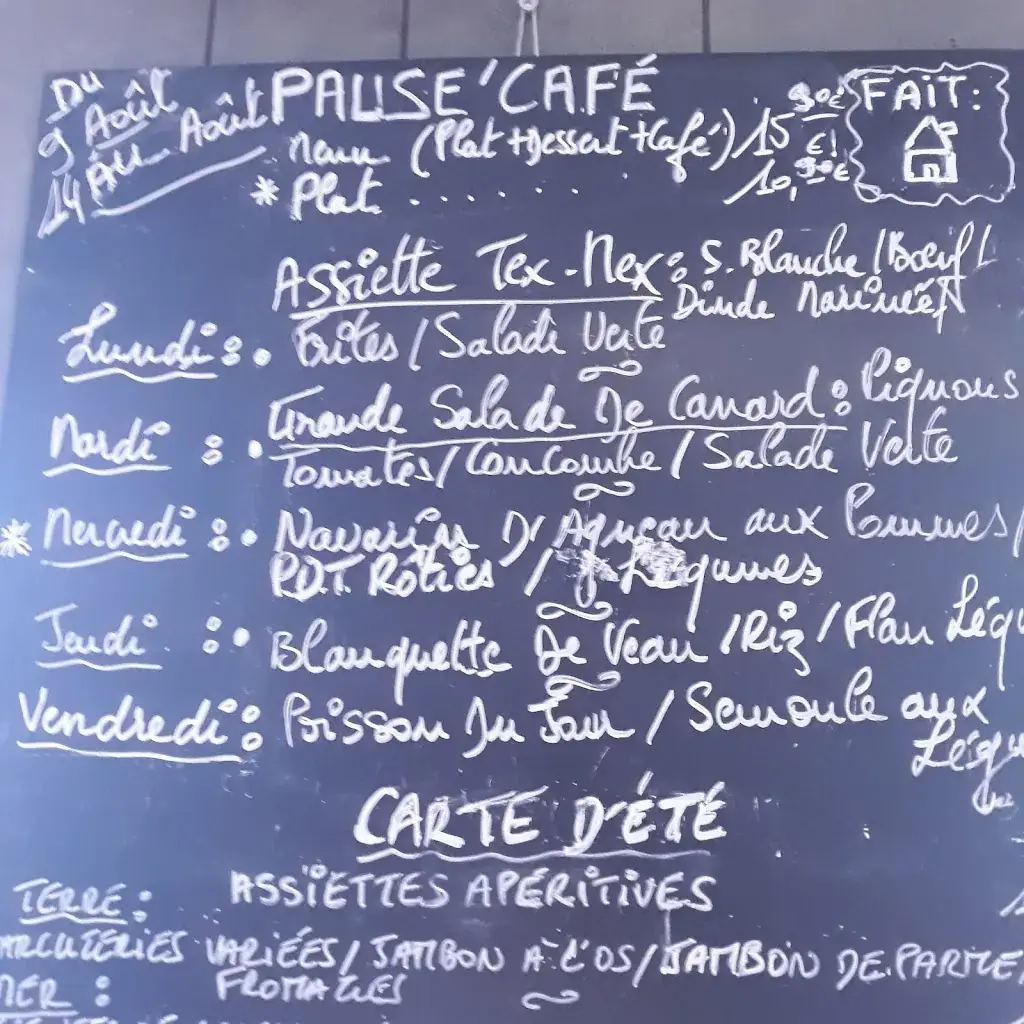 Du
9 Août
Au 14 Août
PAUSE'CAFÉ
FAiT:
Menu (Plat+Dessert+Café) 15,90€
* Plat . . . . . . 10,90€
Assiette Tex-Mex: S. Blanche / Boeuf /
Dinde Marinées
Lundi: • Frites / Salade Verte
Grande Salade De Canard: Pignons
Mardi : • Tomates / Concombre / Salade Verte
* Mercredi : • Navarin D'Agneau aux Pommes /
P.D.T. Rôties / Légumes
Jeudi : • Blanquette De Veau / Riz / Flan Légu
Vendredi: Poisson Du Jour / Semoule aux
Légu
CARTE D'ÉTÉ
TERRE: ASSiETTES APÉRiTiVES
ARCUTERIES VARIÉES / JAMBON À L'OS / JAMBON DE PARME,
MER : FROMAGES